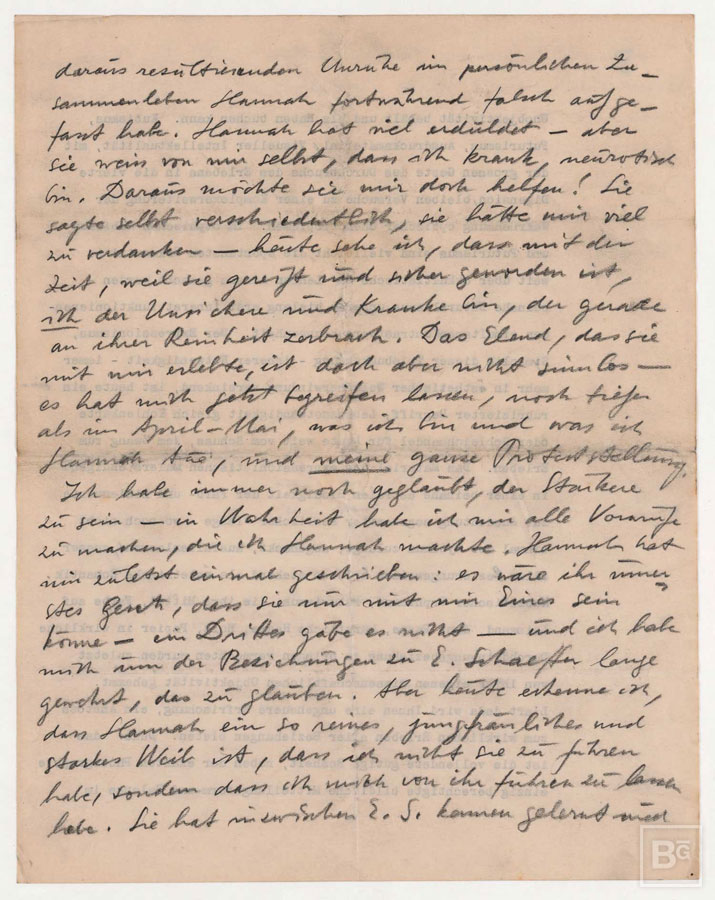 daraus resultierenden Unruhe im persönlichen Zu-
sammenleben Hannah fortwährend falsch aufge-
fasst habe. Hannah hat viel erduldet – aber
sie weiss von mir selbst, dass ich krank, neurotisch
bin. Daraus möchte sie mir doch helfen! Sie
sagte selbst verschiedentlich, sie hätte mir viel
zu verdanken – heute sehe ich, dass mit der
Zeit, weil sie gereift und sicher geworden ist,
ich der Unsichere und Kranke bin, der gerade
an ihrer Reinheit zerbrach. Das Elend, das sie
mit mir erlebte, ist doch aber nicht sinnlos –
es hat mich jetzt begreifen lassen, noch tiefer
als im April-Mai, was ich bin und was ich
Hannah tue, und meine ganze Proteststellung.
Ich habe immer noch geglaubt, der Stärkere
zu sein – in Wahrheit habe ich mir alle Vorwürfe
zu machen, die ich Hannah machte. Hannah hat
mir zuletzt einmal geschrieben: es wäre ihr inner
stes Gesetz, dass sie nur mit mir Eines sein
könne – ein Drittes gäbe es nicht – und ich habe
mich um der Beziehungen zu E. Schaeffer lange
gewehrt, das zu glauben. Aber heute erkenne ich,
dass Hannah ein so reines, jungfräuliches und
starkes Weib ist, dass ich nicht sie zu führen
habe, sondern dass ich mich von ihr führen zu lassen
habe. Sie hat inzwischen E. S. kennen gelernt und
BG